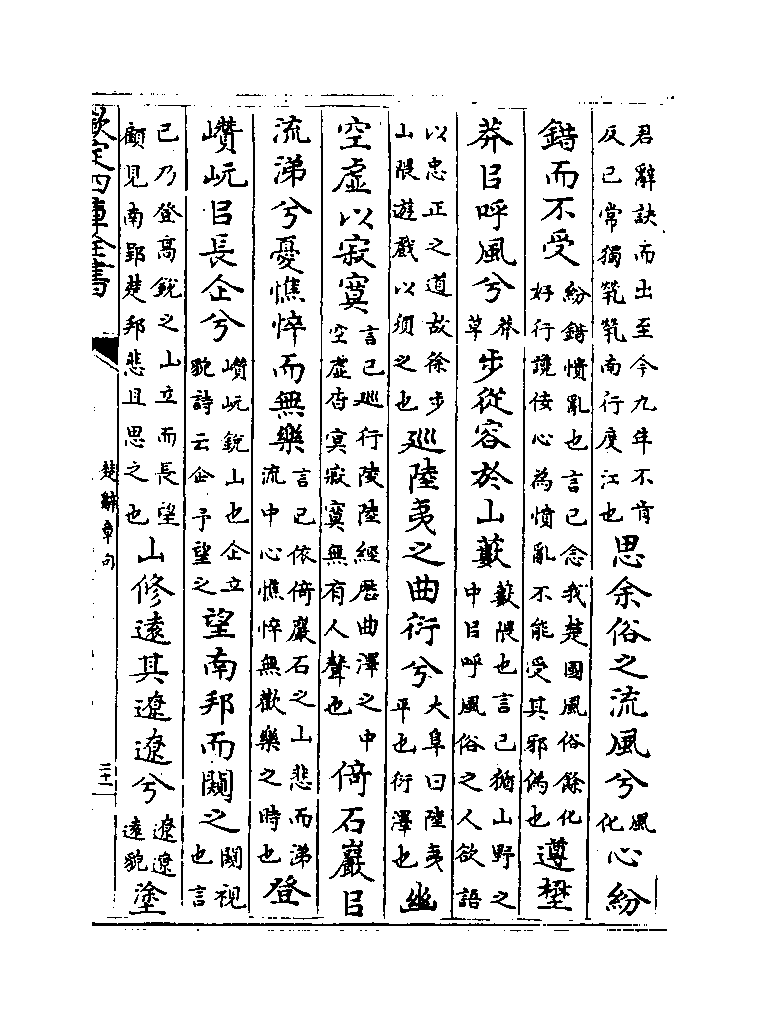 君辭訣而出至今九年不肯反已常獨煢煢南行度江也思余俗之流風兮風化心紛
錯而不受紛錯憒亂也言已念我楚國風俗餘化好行讒佞心為憤亂不能受其邪偽也遵壄
莽㠯呼風兮莽草步從容於山藪藪隈也言已猶山野之中㠯呼風俗之人欲語
以忠正之道故徐步山隈遊戲以須之也巡陸夷之曲衍兮大阜曰陸夷平也衍澤也幽
空虛以寂寞言已巡行陵陸經厯曲澤之中空虛杳冥寂寞無有人聲也倚石巖㠯
流涕兮憂憔悴而無樂言已依倚巖石之山悲而涕流中心憔悴無歡樂之時也登
巑岏㠯長企兮巑岏銳山也企立貌詩云企予望之望南郢而闚之闚視也言
已乃登高銳之山立而長望顧見南郢楚邦悲且思之也山修遠其遼遼兮遼遼遠貌塗
欽定四庫全書
楚辭章句